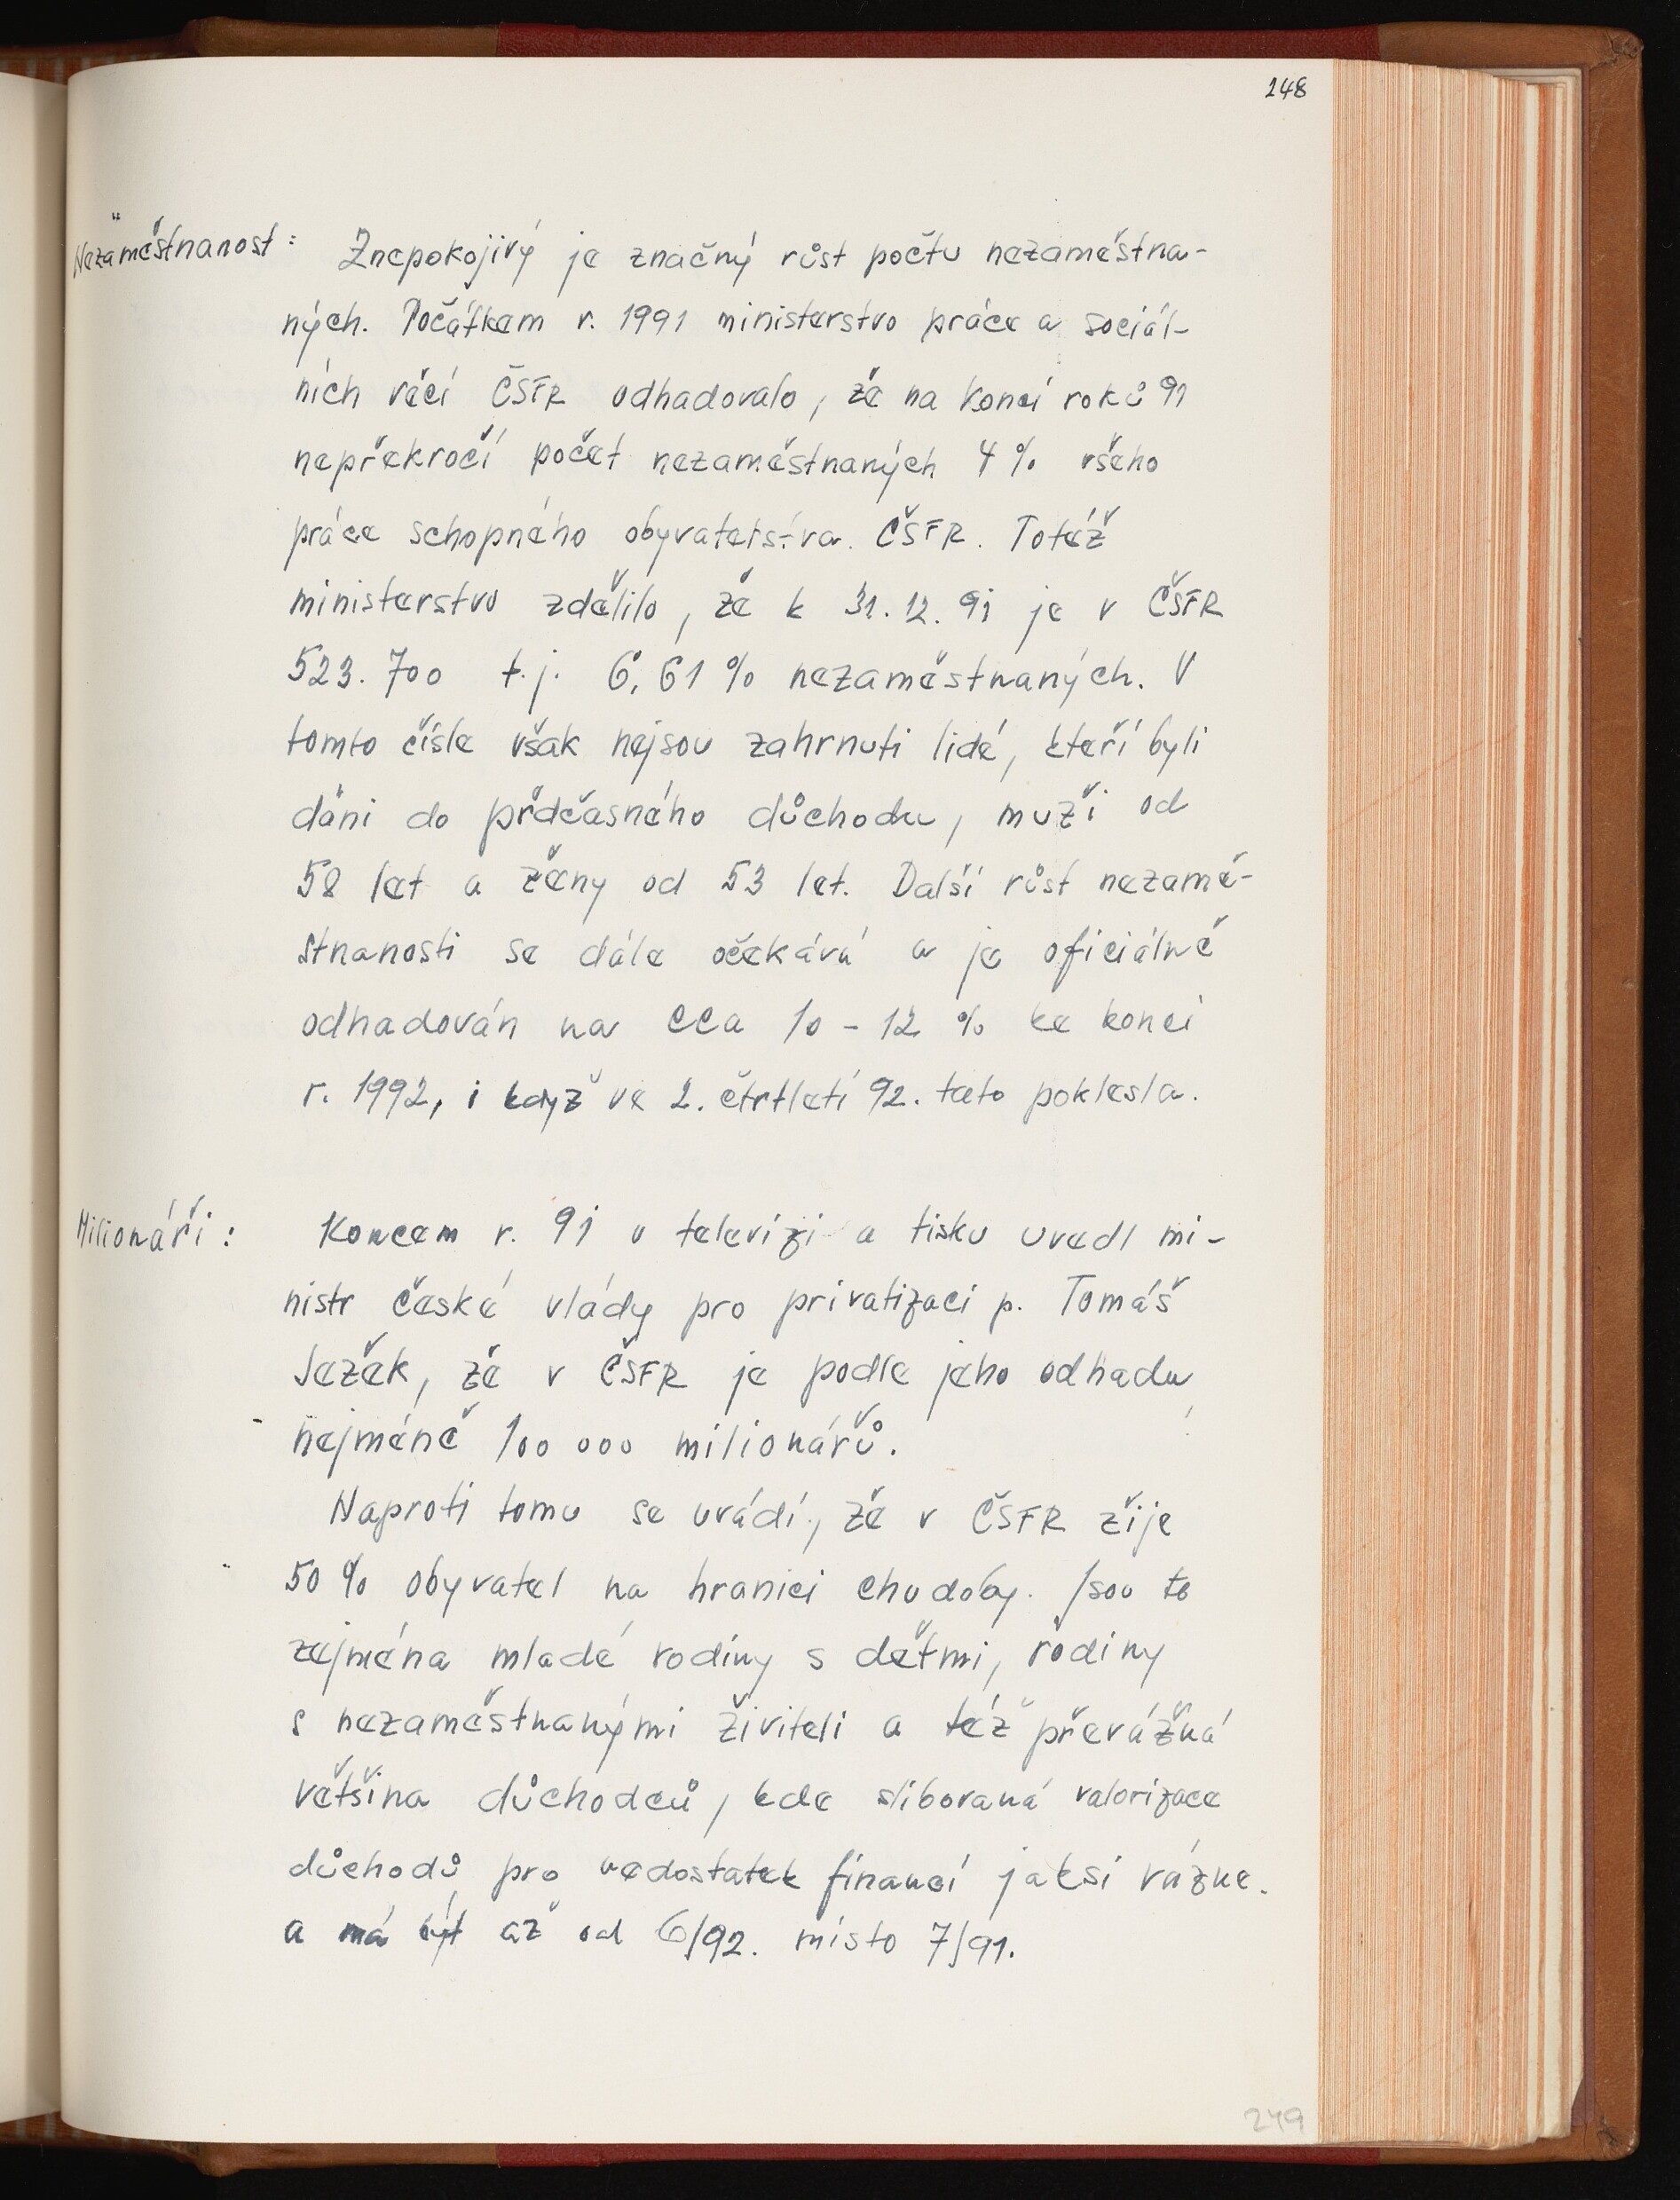 248
Nezaměstnanost: Znepokojivý je značný růst počtu nezaměstna-
ných. Počátkem r. 1991 ministerstvo práce a sociál-
ních věcí ČSFR odhadovalo, že na konci roků 91
nepřekročí počet nezaměstnaných 4% všeho
práce schopného obyvatelstva ČSFR. Totéž
ministerstvo zdělilo, že k 31.12.91 je v ČSFR
523.700 t.j. 6,61% nezaměstnaných. V
tomto čísle však nejsou zahrnuti lidé, kteří byli
dáni do přdčasného důchodu, muži od
58 let a ženy od 53 let. Další růst nezamě-
stnanosti se dále očekává a je oficiálně
odhadován na cca 10-12% ke konci
r. 1992, i když ve 2. čtrtletí 92. tato poklesla.
Milionáři: Koncem r. 91 v televizi a tisku uvedl mi-
nistr české vlády pro privatizaci p. Tomáš
Ježek, že v ČSFR je podle jeho odhadu
nejméně 100 000 milionářů.
Naproti tomu se uvádí, že v ČSFR žije
50% obyvatel na hranici chudoby. Jsou to
zejména mladé rodiny s dětmi, rodiny
s nezaměstnanými živiteli a též převážná
většina důchodců, kde slibovaná valorizace
důchodů pro nedostatek financí jaksi vázne.
a má být až od 6/92. místo 7/91.
249